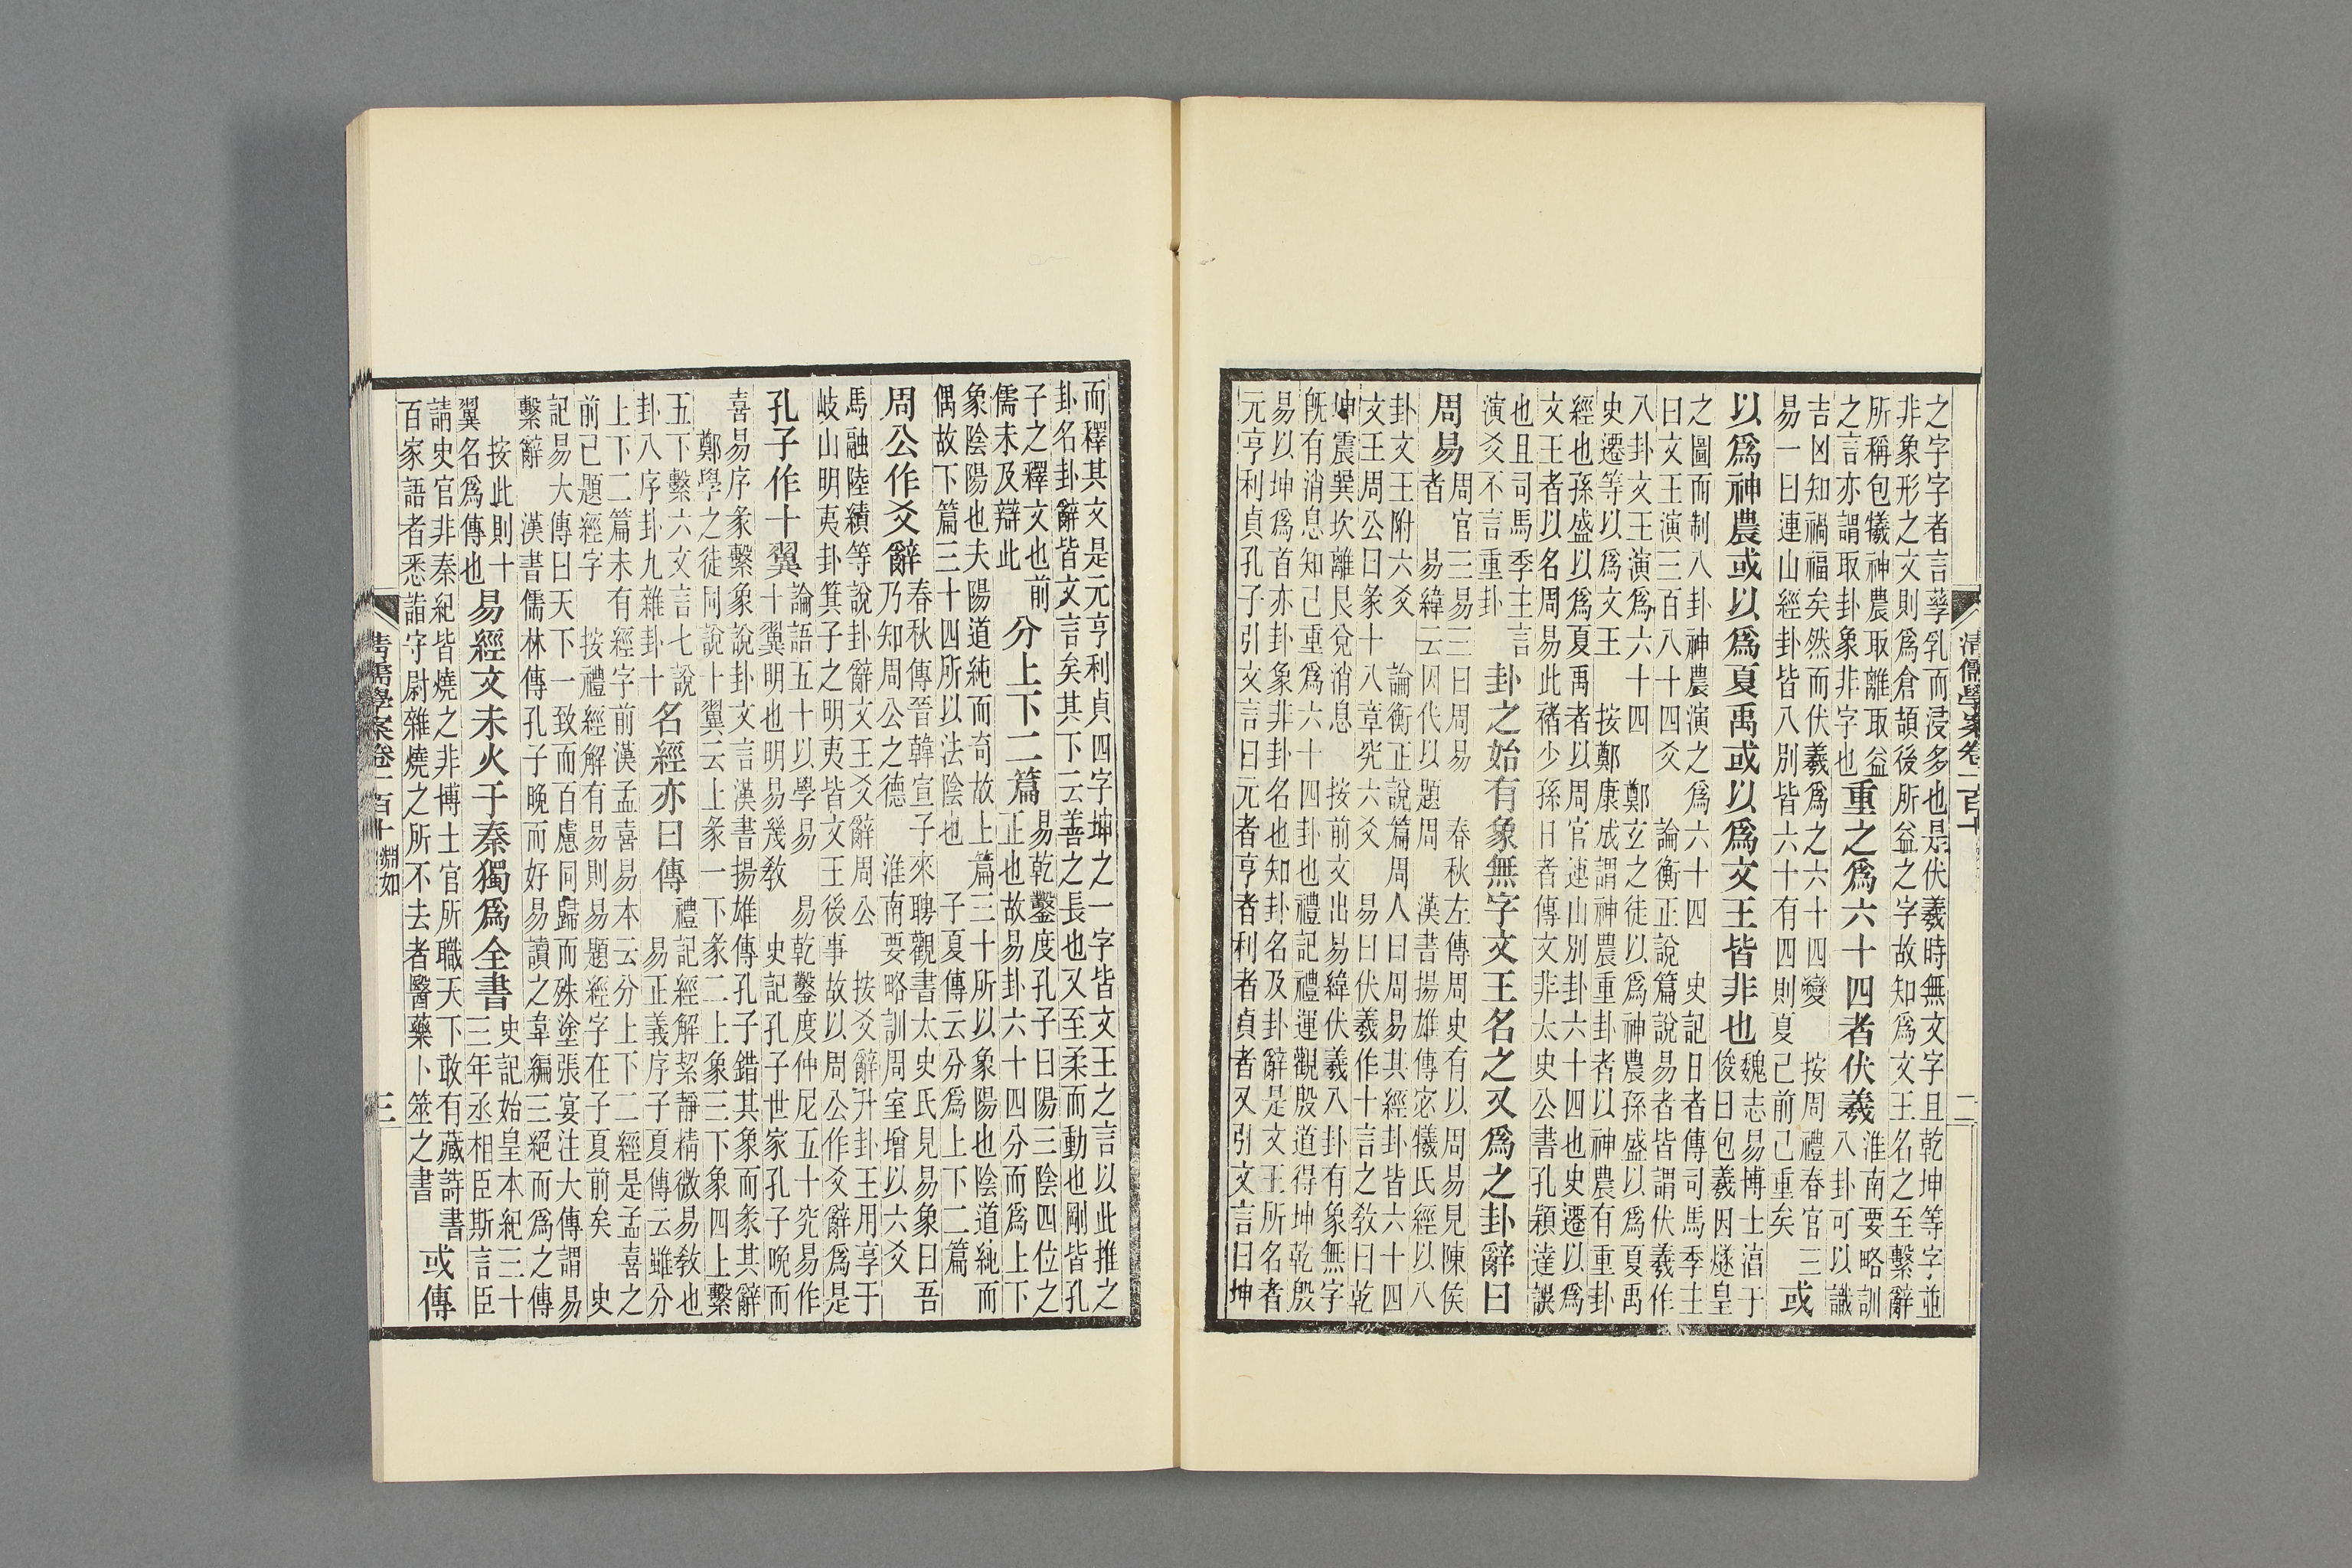 清儒學案卷一百十
二
之字字者言孳乳而浸多也是伏羲時無文字且乾坤等字並
非象形之文則爲倉頡後所益之字故知爲文王名之至繫辭
所稱包犧神農取離取益
之言亦謂取卦象非字也
重之爲六十四者伏羲
淮南要略訓
八卦可以識
吉凶知禍福矣然而伏羲爲之六十四變 按周禮春官三
易一曰連山經卦皆八別皆六十有四則夏已前已重矣
或
以爲神農或以爲夏禹或以爲文王皆非也
魏志易博士湻于
俊曰包羲因燧皇
之圖而制八卦神農演之爲六十四 史記日者傳司馬季主
曰文王演三百八十四爻 論衡正說篇說易者皆謂伏羲作
八卦文王演爲六十四 鄭玄之徒以爲神農孫盛以爲夏禹
史遷等以爲文王 按鄭康成謂神農重卦者以神農有重卦
經也孫盛以爲夏禹者以周官連山別卦六十四也史遷以爲
文王者以名周易此豬少孫日者傳文非太史公書孔穎達誤
也且司馬季主言
演爻不言重卦
卦之始有象無字文王名之又爲之卦辭曰
周易
周官三易三曰周易 春秋左傳周史有以周易見陳侯
者 易緯云因代以題周 漢書揚雄傳宓犧氏經以八
卦文王附六爻 論衡正說篇周人曰周易其經卦皆六十四
文王周公曰彖十八章究六爻 易曰伏羲作十言之敎曰乾
坤震巽坎離艮兌消息 按前文出易緯伏羲八卦有象無字
旣有消息知已重爲六十四卦也禮記禮運觀殷道得坤乾殷
易以坤爲首亦卦象非卦名也知卦名及卦辭是文王所名者
元亨利貞孔子引文言曰元者亨者利者貞者又引文言曰坤
而釋其文是元亨利貞四字坤之一字皆文王之言以此推之
卦名卦辭皆文言矣其下云善之長也又至柔而動也剛皆孔
子之釋文也前
儒未及辯此
分上下二篇
易乾鑿度孔子曰陽三陰四位之
正也故易卦六十四分而爲上下
象陰陽也夫陽道純而奇故上篇三十所以象陽也陰道純而
偶故下篇三十四所以法陰也 子夏傳云分爲上下二篇
周公作爻辭
春秋傳晉韓宣子來聘觀書太史氏見易象曰吾
乃知周公之德 淮南要略訓周室增以六爻
馬融陸績等說卦辭文王爻辭周公 按爻辭升卦王用享于
岐山明夷卦箕子之明夷皆文王後事故以周公作爻辭爲是
孔子作十翼
論語五十以學易 易乾鑿度仲尼五十究易作
十翼明也明易幾敎 史記孔子世家孔子晚而
喜易序彖繫象說卦文言漢書揚雄傳孔子錯其象而彖其辭
鄭學之徒同說十翼云上彖一下彖二上象三下象四上繫
五下繫六文言七說
卦八序卦九雜卦十
名經亦曰傳
禮記經解絜靜精微易敎也
易正義序子夏傳云雖分
上下二篇未有經字前漢孟喜易本云分上下二經是孟喜之
前已題經字 按禮經解有易則易題經字在子夏前矣 史
記易大傳曰天下一致而百慮同歸而殊塗張宴注大傳謂易
繫辭 漢書儒林傳孔子晚而好易讀之韋編三絕而爲之傳
按此則十
翼名爲傳也
易經文未火于秦獨爲全書
史記始皇本紀三十
三年丞相臣斯言臣
請史官非秦紀皆燒之非博士官所職天下敢有藏詩書
百家語者悉詣守尉雜燒之所不去者醫藥卜筮之書
或傳
清儒學案卷一百十 淵如
三